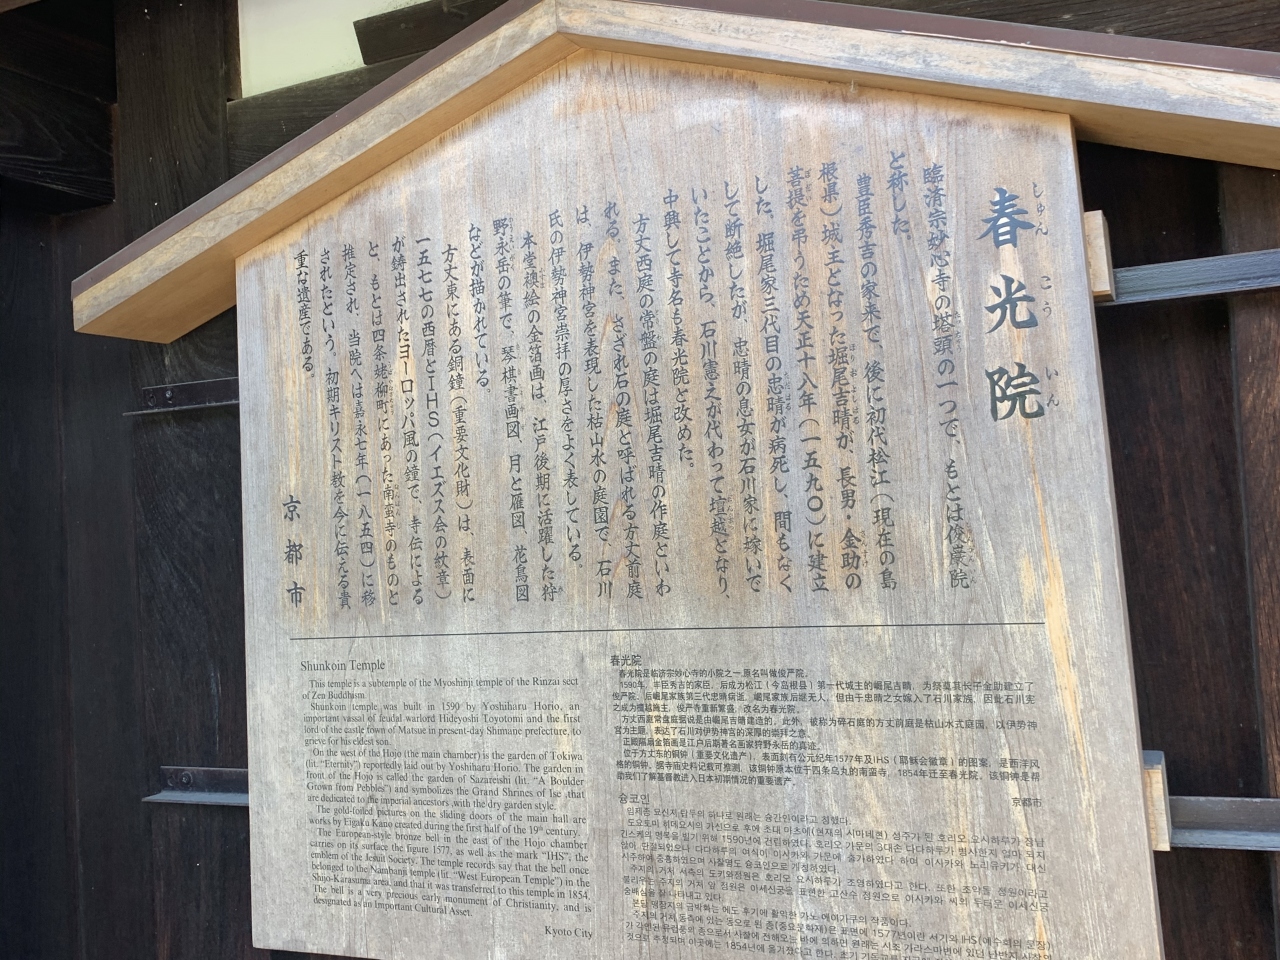 春光院
しゅん こう いん
臨済宗妙心寺の塔頭の一つで、もとは俊巌院
と称した。
豊臣秀吉の家来で、後に初代松江（現在の島
根県）城主となった堀尾吉晴が、長男・金助の
菩提を弔うため天正十八年（一五九〇）に建立
した。堀尾家三代目の忠晴が病死し、間もなく
して断絶したが、忠晴の息女が石川家に嫁いで
いたことから、石川憲之が代わって壇越となり、
中興して寺名も春光院と改めた。
方丈西庭の常盤の庭は堀尾吉晴の作庭といわ
れる。また、さざれ石の庭と呼ばれる方丈前庭
は、伊勢神宮を表現した枯山水の庭園で、石川
氏の伊勢神宮崇拝の厚さをよく表している。
本堂襖絵の金箔画は、江戸後期に活躍した狩
野永岳の筆で、琴棋書画図、月と雁図、花鳥図
などが描かれている。
方丈東にある銅鐘（重要文化財）は、表面に
一五七七の西暦とIHS（イエズス会の紋章）
が鋳出されたヨーロッパ風の鐘で、寺伝による
と、もとは四条姥柳町にあった南蛮寺のものと
推定され、当院へは嘉永七年（一八五四）に移
されたという。初期キリスト教を今に伝える貴
重な遺産である。
京都市
Shunkoin Temple
This temple is a subtemple of the Myoshinji temple of the Rinzai sect
of Zen Buddhism.
Shunkoin temple was built in 1590 by Yoshiharu Horio, an
important vassal of feudal warlord Hideyoshi Toyotomi and the first
lord of the castle town of Matsue in present-day Shimane prefecture, to
grieve for his eldest son.
On the west of the Hojo (the main chamber) is the garden of Tokiwa
(lit. "Eternity") reportedly laid out by Yoshiharu Horio. The garden in
front of the Hojo is called the garden of Sazareishi (lit. "A Boulder
Grown from Pebbles") and symbolizes the Grand Shrines of Ise ,that
are dedicated to the imperial ancestors ,with the dry garden style.
The gold-foiled pictures on the sliding doors of the main hall are
works by Eigaku Kano created during the first half of the 19th century.
The European-style bronze bell in the east of the Hojo chamber
carries on its surface the figure 1577, as well as the mark "IHS", the
emblem of the Jesuit Society. The temple records say that the bell once
belonged to the Nambanji temple (lit. "West European Temple") in the
Shijo-Karasuma area, and that it was transferred to this temple in 1854.
The bell is a very precious early monument of Christianity, and is
designated as an Important Cultural Asset.
Kyoto City
春光院
春光院是临济宗妙心寺的小院之一,原名叫做俊严院。
1590年，丰臣秀吉的家臣，后成为松江（今岛根县）第一代城主的崛尾吉晴，为祭奠其长子金助建立了
俊严院。后崛尾家族第三代忠晴病逝，崛尾家族后继无人，但由于忠晴之女嫁入了石川家族，因此石川宪
之成为檀越施主，俊严寺重新繁盛，改名为春光院。
方丈西庭常盘庭据说是由崛尾吉晴建造的。此外，被称为碎石庭的方丈前庭是枯山水式庭园，以伊势神
宫为主题，表达了石川对伊势神宫的深厚的崇拜之意。
正殿隔扇金箔画是江户后期著名画家狩野永岳的真迹。
位于方丈东的铜钟（重要文化遗产），表面刻有公元纪年1577年及IHS（耶稣会徽章）的图案，是西洋风
格的铜钟。据寺庙史料记载可推测，该铜钟原本位于四条乌丸的南蛮寺，1854年迁至春光院，该铜钟是帮
助我们了解基督教进入日本初期情况的重要遗产。
京都市
슝코인
임제종 묘신지 탑두의 하나로 원래는 슝간인이라고 칭했다.